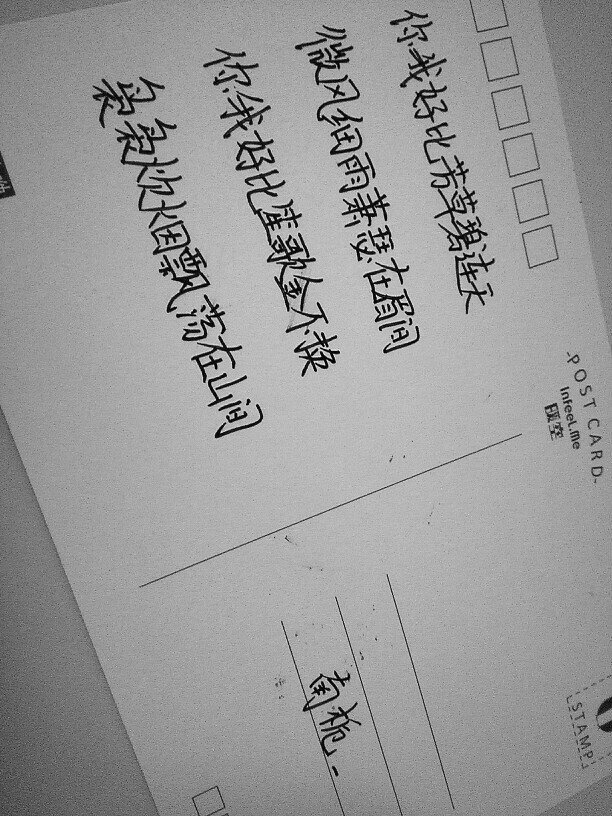 你我好比芳草碧连天
微风细雨萧瑟在眉间
你我好比笙歌金不换
袅袅炊烟飘荡在山间
-POST CARD-
Infeel.Me
南栀.
STAMP